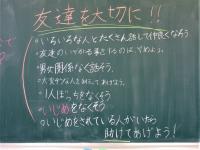 友達を大切に!!
・いろいろな人とたくさん話して仲良くなろう
・友達のいやがる事をするのは、やめよう。
・男女関係なく話そう。
・大変そうな人を助けてあげよう。
・1人ぼっちをなくそう
・いじめをなくそう
・いじめをされている人がいたら
助けてあげよう!